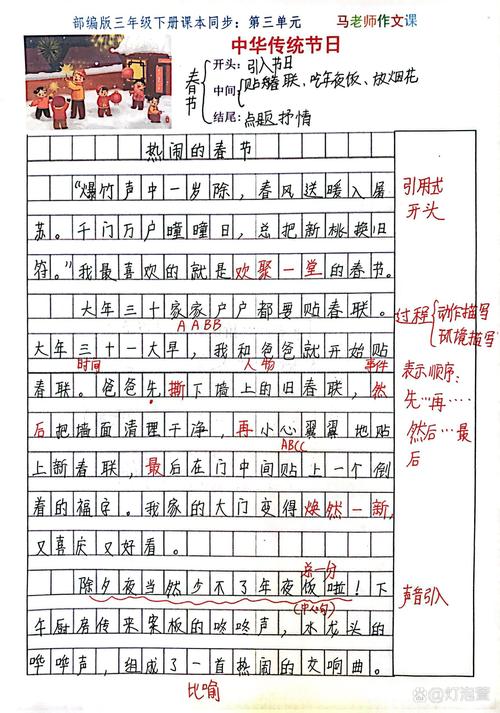 部编版三年级下册课本同步：第三单元
马老师作文课
中华传统节日
春节
开头：引入节日
中间 贴春联、吃年夜饭、放烟花
结尾：点题，抒情
热闹的春节
“爆竹声中一岁除，春风送暖入屠
苏。千门万户曈曈日，总把新桃换旧
符。”我最喜欢的就是欢聚一堂的春节。
引用式
开头
大年三十家家户户都要贴春联。
AABB
过程 动作描写
环境描写
大年三十一大早，我和爸爸就开始贴
时间
人物
事件
春联。爸爸先撕下墙上的旧春联，然
后把墙面清理干净，再小心翼翼地贴
ABCC
上新春联，最后在门中间贴上一个倒
着的福字。我家的大门变得焕然一新，
又喜庆又好看。
表示顺序：
先…再……
然后…最
后
总一分
除夕夜当然少不了年夜饭啦！下
(中心句)
午厨房传来案板的咚咚声，水龙头的
哗哗声，组成了一首热闹的交响曲。
声音引入
比喻
@灯泡萱